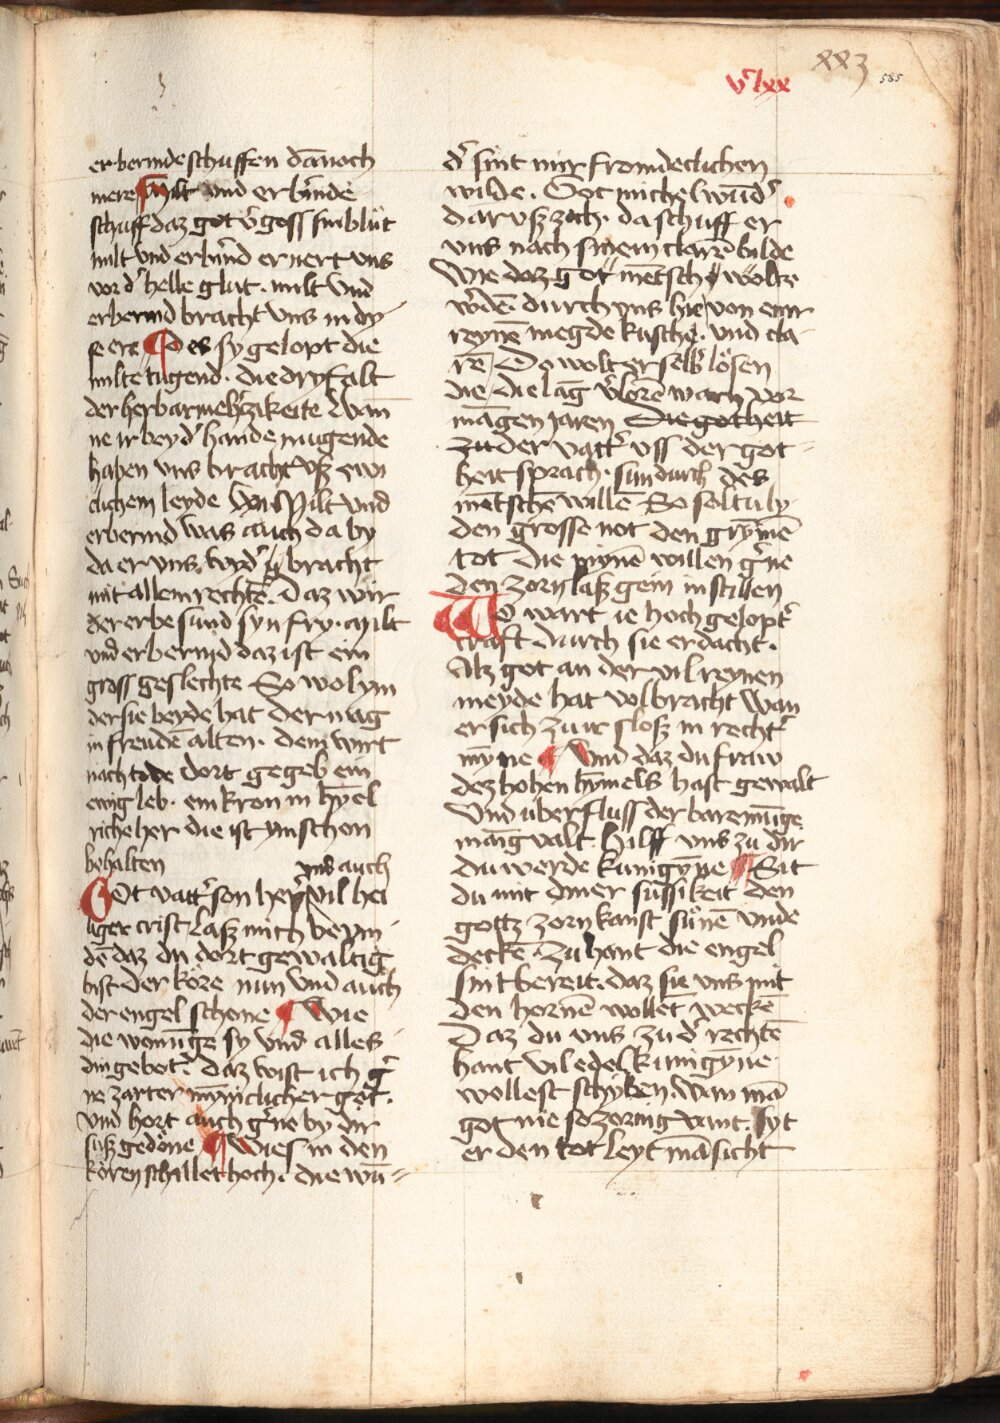 xx3
585
vclxx
erbermde schuffen dānoch
mere Milt und erbmde
schuff daz got v̓goss sin blůt
milt vnd erbmd ernert vns
vor d̓ helle glut · milt vnd
erbermd bracht vns in dy
se ere Des sy gelopt die
milte tugend · die dryfalt
der herbarmeh̓zikeite Wan
ne ir beyd̓ hande mugende
haben vns bracht vß ewi
clichem leyde Von Milt vnd
erbermd was auch da by
da er vns wyd̓ bracht
mit allem rechtē · Daz wir
der erbe sund syn fry · Milt
vnd erbermd daz ist ein
gross geslechte So wol ym
der sie beyde hat der mag
in freudē alten · dem wirt
nach tode dort gegeb ein
ewig leb · ein kron in hȳel
riche her die ist ym schon
behalten
vns auch
Got vatt̓ son her vil hei
liger crist laß mich veym
dē daz du dort gewaltig
bist der köre nun vnd auch
der engel schone Wie
die wonūge sy vnd alles
din gebot · daz wist ich g̓
ne zarter mȳniclicher got ·
vnd hort auch g̓ne by dir
süß gedöne Wies in den
kören schillet hoch · die wū=
d̓ sint mir fromdeclichen
wilde · Got michel wūd̓
dar vß zoch · da schuff er
vns nach sinem clarē bilde
Wie daz got mētsch wolte
w̓dē · durch vns hie von einr
reynē megde kusche · vnd cla
rē Do wolt er selb̓ lösen
die die lāg v̓lorē warn vor
māgen jaren Die gotheit
zu der vatt̓ vss der got
heit sprach · sun durch des
mētschē willē So soltu ly
den grosse not den grȳmē
tot die pynē willen g̓ne
den zorn laß gein in stillen
Wo wart ie hoch gelopt̓
craft durch sie erdacht ·
Alz got an der vil reynen
meyde hat volbracht Wan
er sich zu ir sloß in recht̓
mȳne Vnd daz du fraw
dez hohen hȳmels hast gewalt
Vnd uberfluss der baremūge
māigvalt · Hilff vns zu dir
du werde kunigȳne Sit
du mit diner sussikeit den
gottz zorn kanst sůnē vnde
decken · Zu hant die engel
sint bereit · daz sie vns mit
den hornē wollēt weckē
Daz du vns zu d̓ rechtē
hant vil edel kunigȳne
wollest schyben · wan mā
got nie so zornig vant · syt
er den tot leyt mā sicht